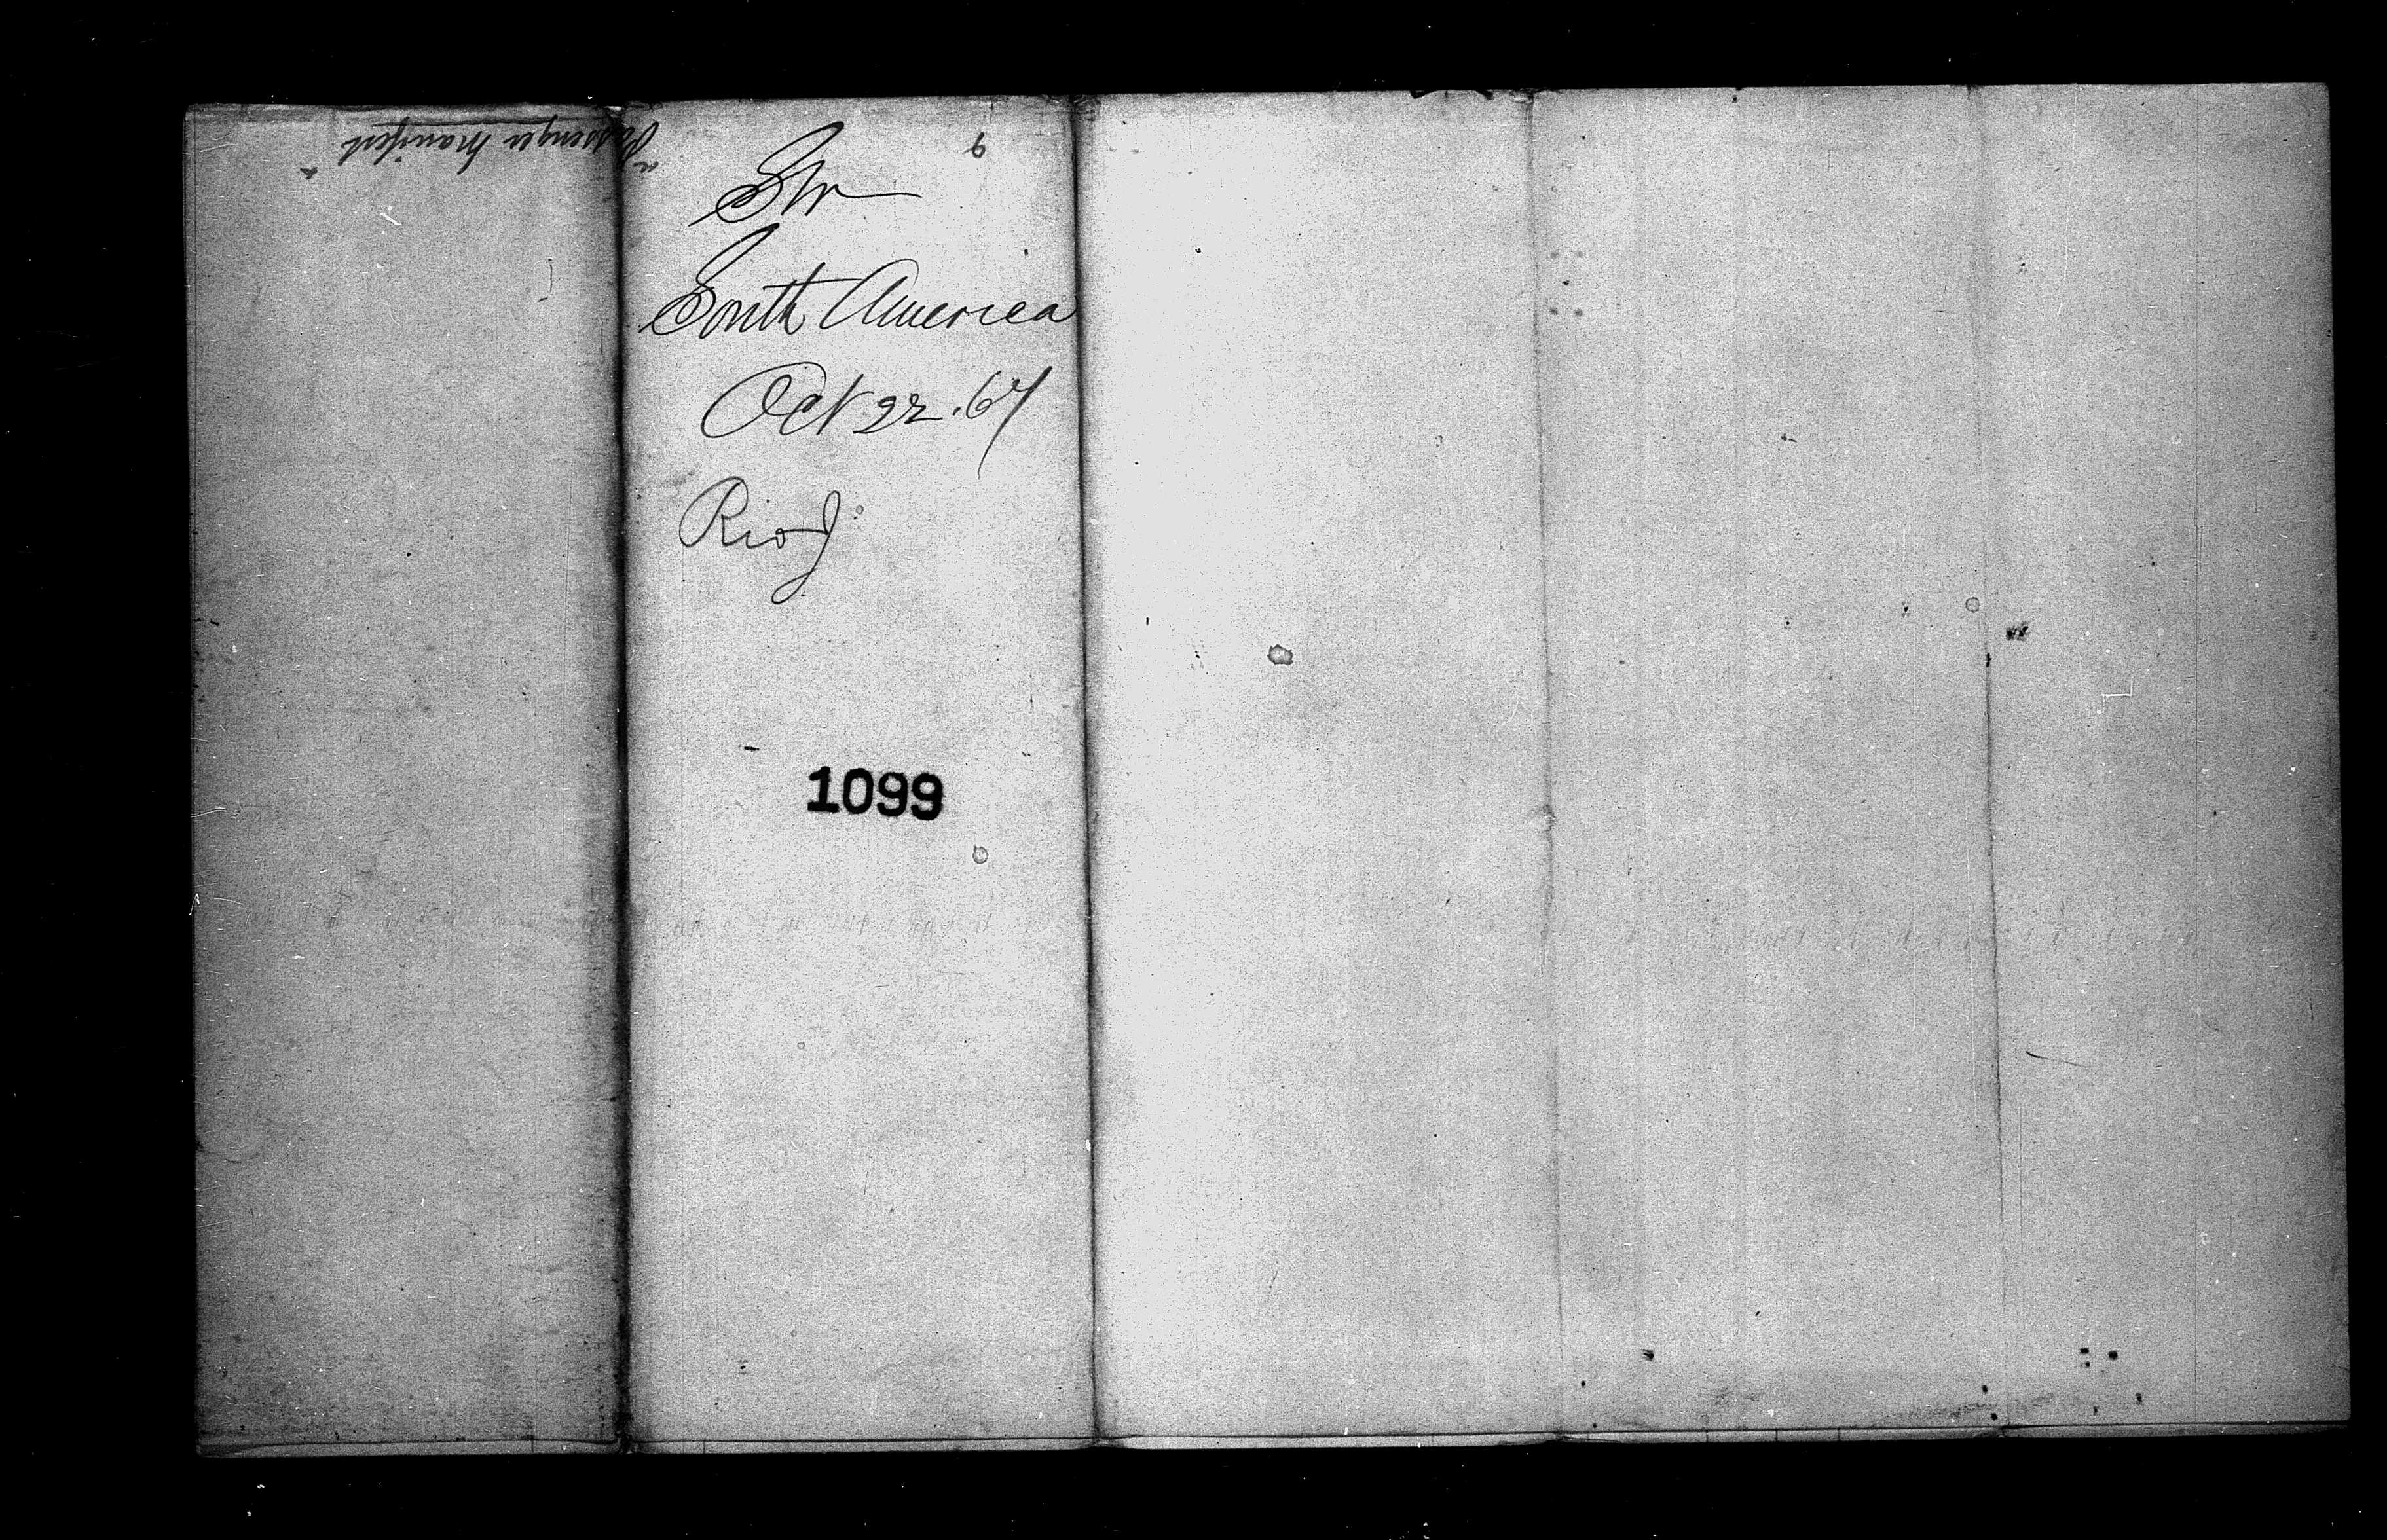 "Passenger Manifest"
6
Str
South America
Oct 22. 67
Rio J
1099